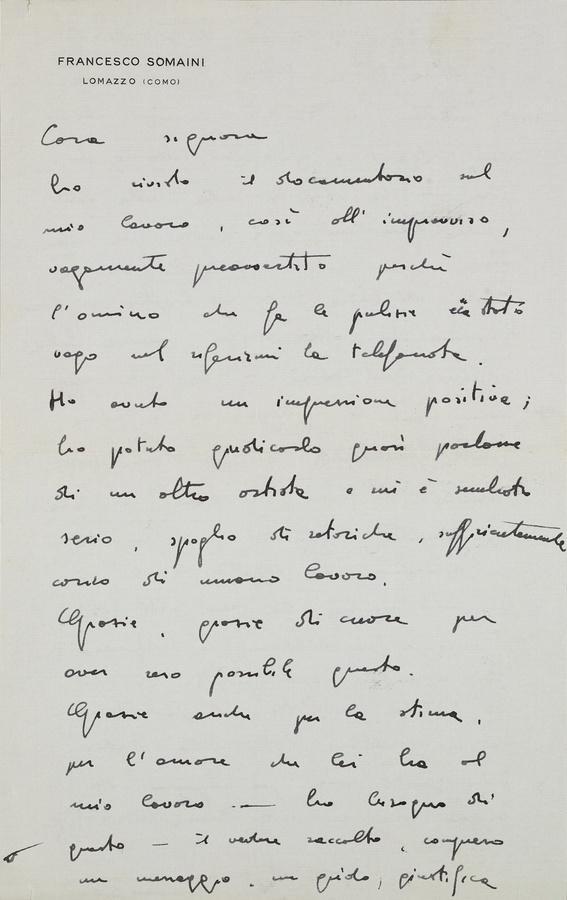 FRANCESCO SOMAINI
LOMAZZO (COMO)
Cara signora
ho rivisto il documentario sul
mio lavoro, così all' improvviso,
vagamente preavvertito perché
l'omino che fa le pulizie è stato
vago nel riferirmi la telefonata.
Ho avuto un impressione positiva;
ho potuto giudicarlo quasi parlasse
di un altro artista e mi è sembrato
serio, spoglio di retoriche, sufficientemente
carico di umano lavoro.
Grazie, grazie di cuore per
aver reso possibile questo.
Grazie anche per la stima,
per l'amore che lei ha al
mio lavoro — ho bisogno di
questo — il vedere raccolto,
un messaggio, un grido, giustifica